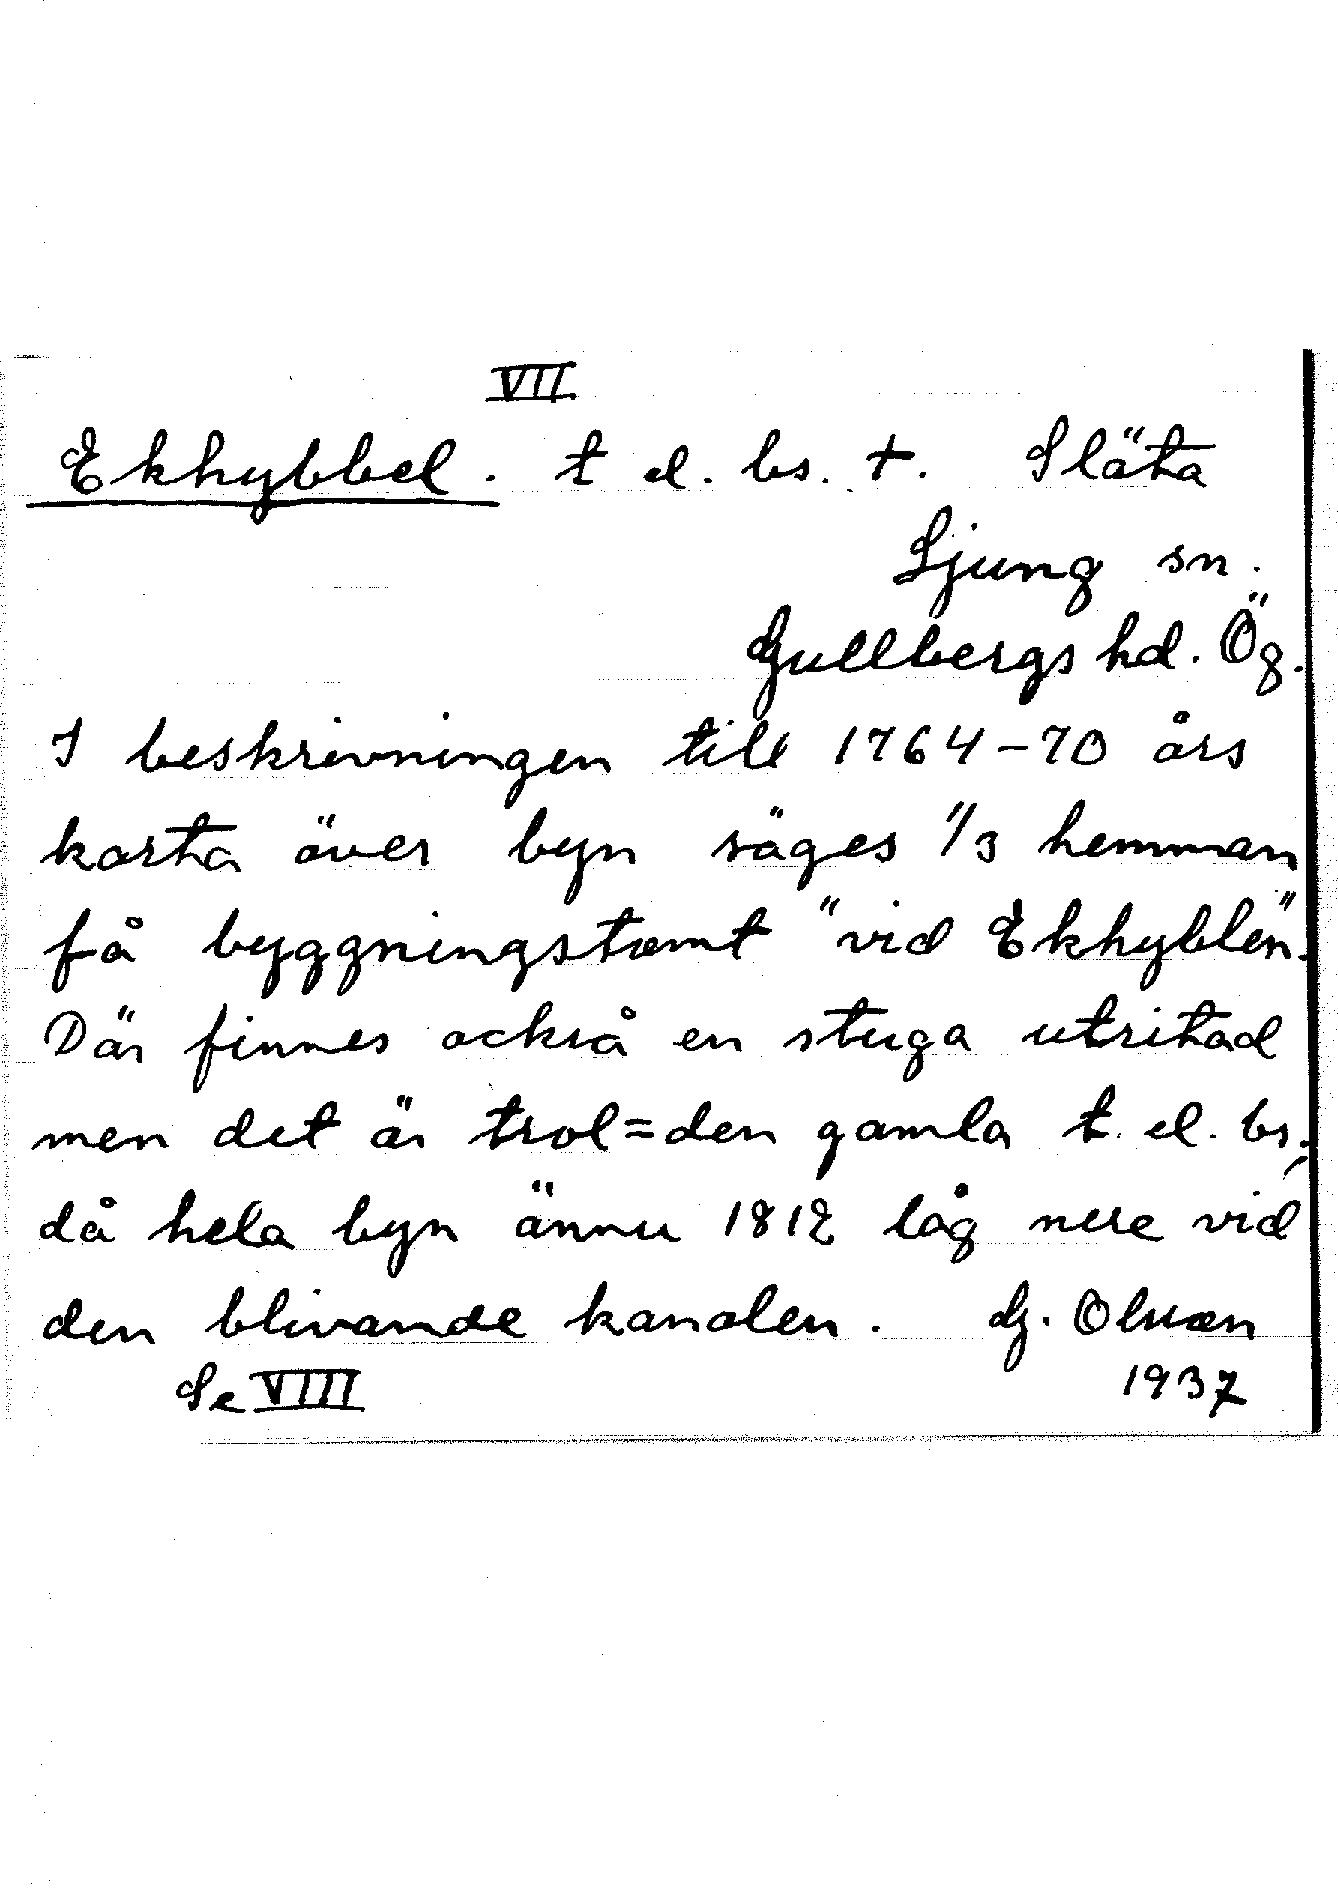 VII
Ekhybbel. t el. bs. +. Släta
Ljung sn.
Gullbergs hd. Ög.
I beskrivningen till 1764-70 års
karta över byn säges 1/3 hemman
få byggningstomt "vid Ekhyblen".
Där finnes också en stuga utritad
men det är trol=den gamla t. el. bs;
då hela byn ännu 1812 låg nere vid
den blivande kanalen. G. Olsson
Se VIII 1937